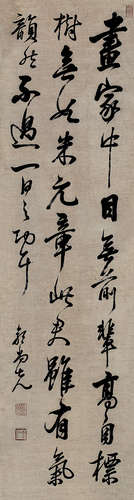 畫家中目無前輩高自標
樹無如米元章此史雖有氣
韻然不過一日之功耳
郭尚先